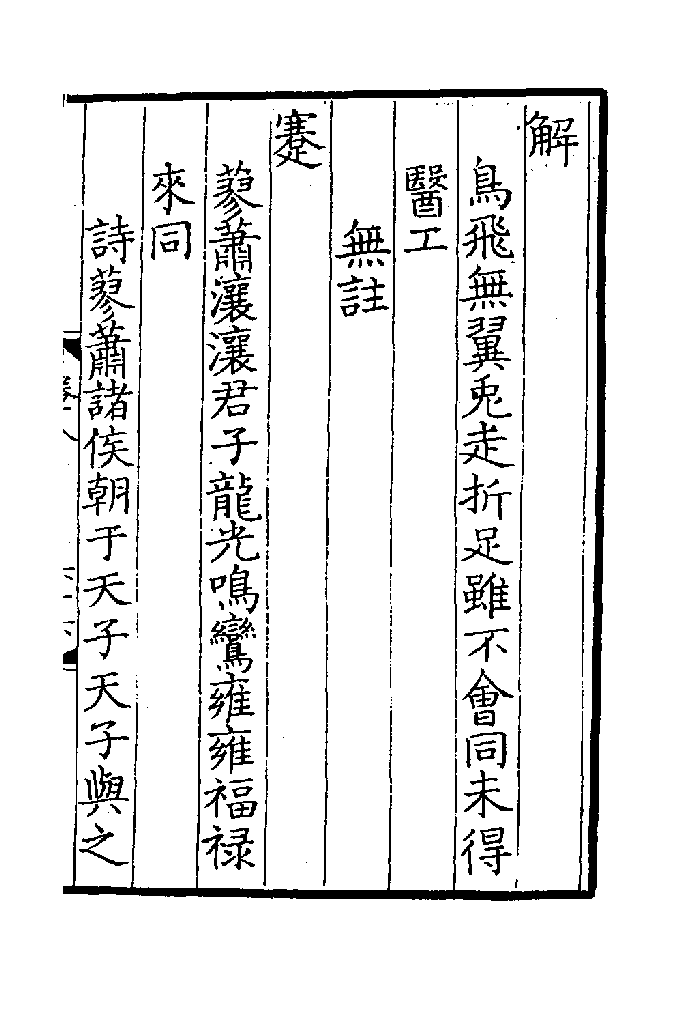 解
鳥飛無翼兎走折足雖不會同未得
醫工
無註
蹇
蓼蕭瀼瀼君子龍光鳴鸞雍雍福禄
來同
詩蓼蕭諸侯朝于天子天子與之